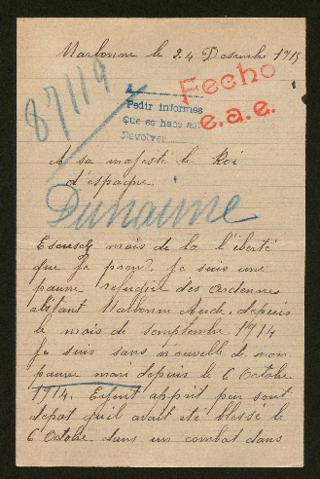 Narbonne le 24 Desembre 1915
87119
Fecho
e.a.e.
Pedir informes
que se hace
Devolver
A sa majesté le Roi
d'espagne.
Dunaime
Escusez mois de la l'iberté
que je pren?. Je suis une
pauvre refugiée des Ardennes
abitant Narbonne Aude. depuis
le mois de semptembre 1914
Je suis sans nouvelle de mon
pauvre mari depuis le 6 Octobre
1914. apprit par sont
depot qu'il avait été blessé le
6 Octobre dans un combat dans